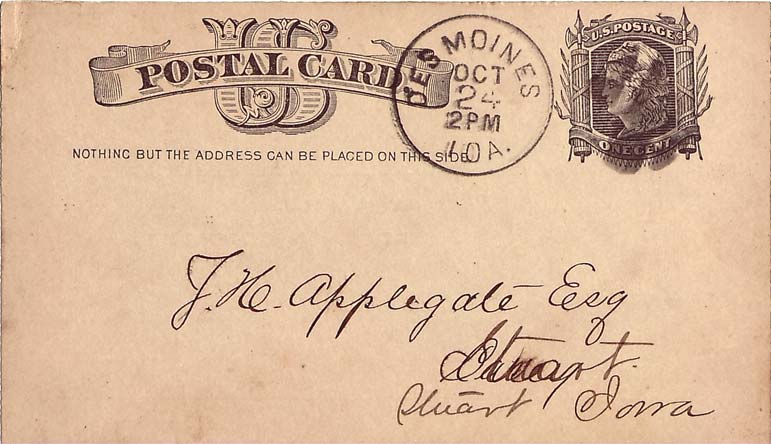 US
POSTAL CARD
NOTHING BUT THE ADDRESS CAN BE PLACED ON THIS SIDE.
DES MOINES
OCT
24
2PM
IOA.
U.S. POSTAGE
ONE CENT
J. H. Applegate Esq
Stuart.
Stuart Iowa